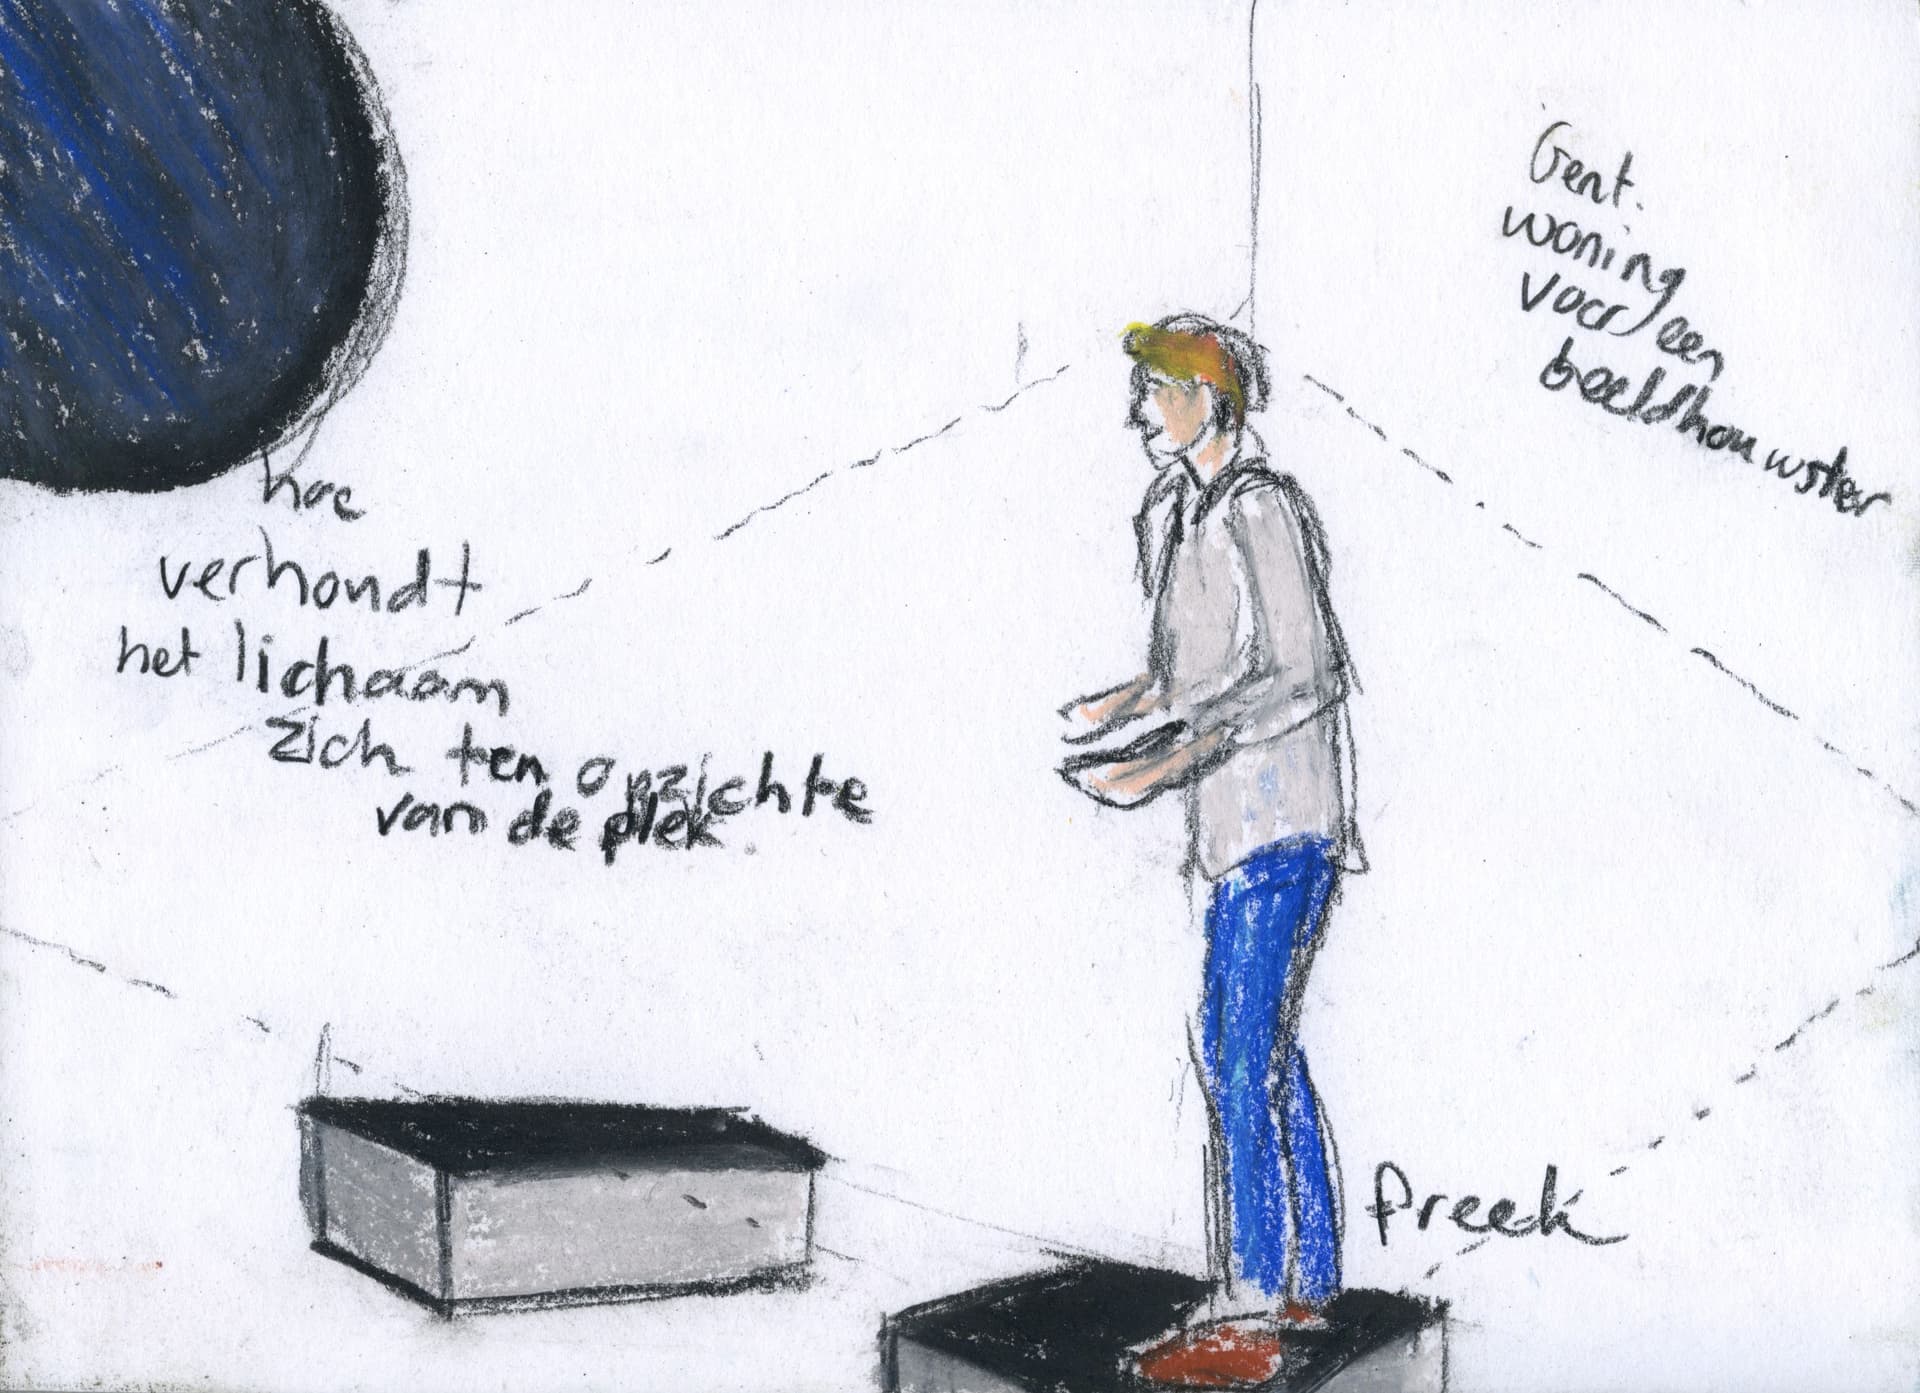 Gent.
woning
voor een
beeldhouwster
hoe
verhoudt
het lichaam
zich ten opzichte
van de plek.
preek